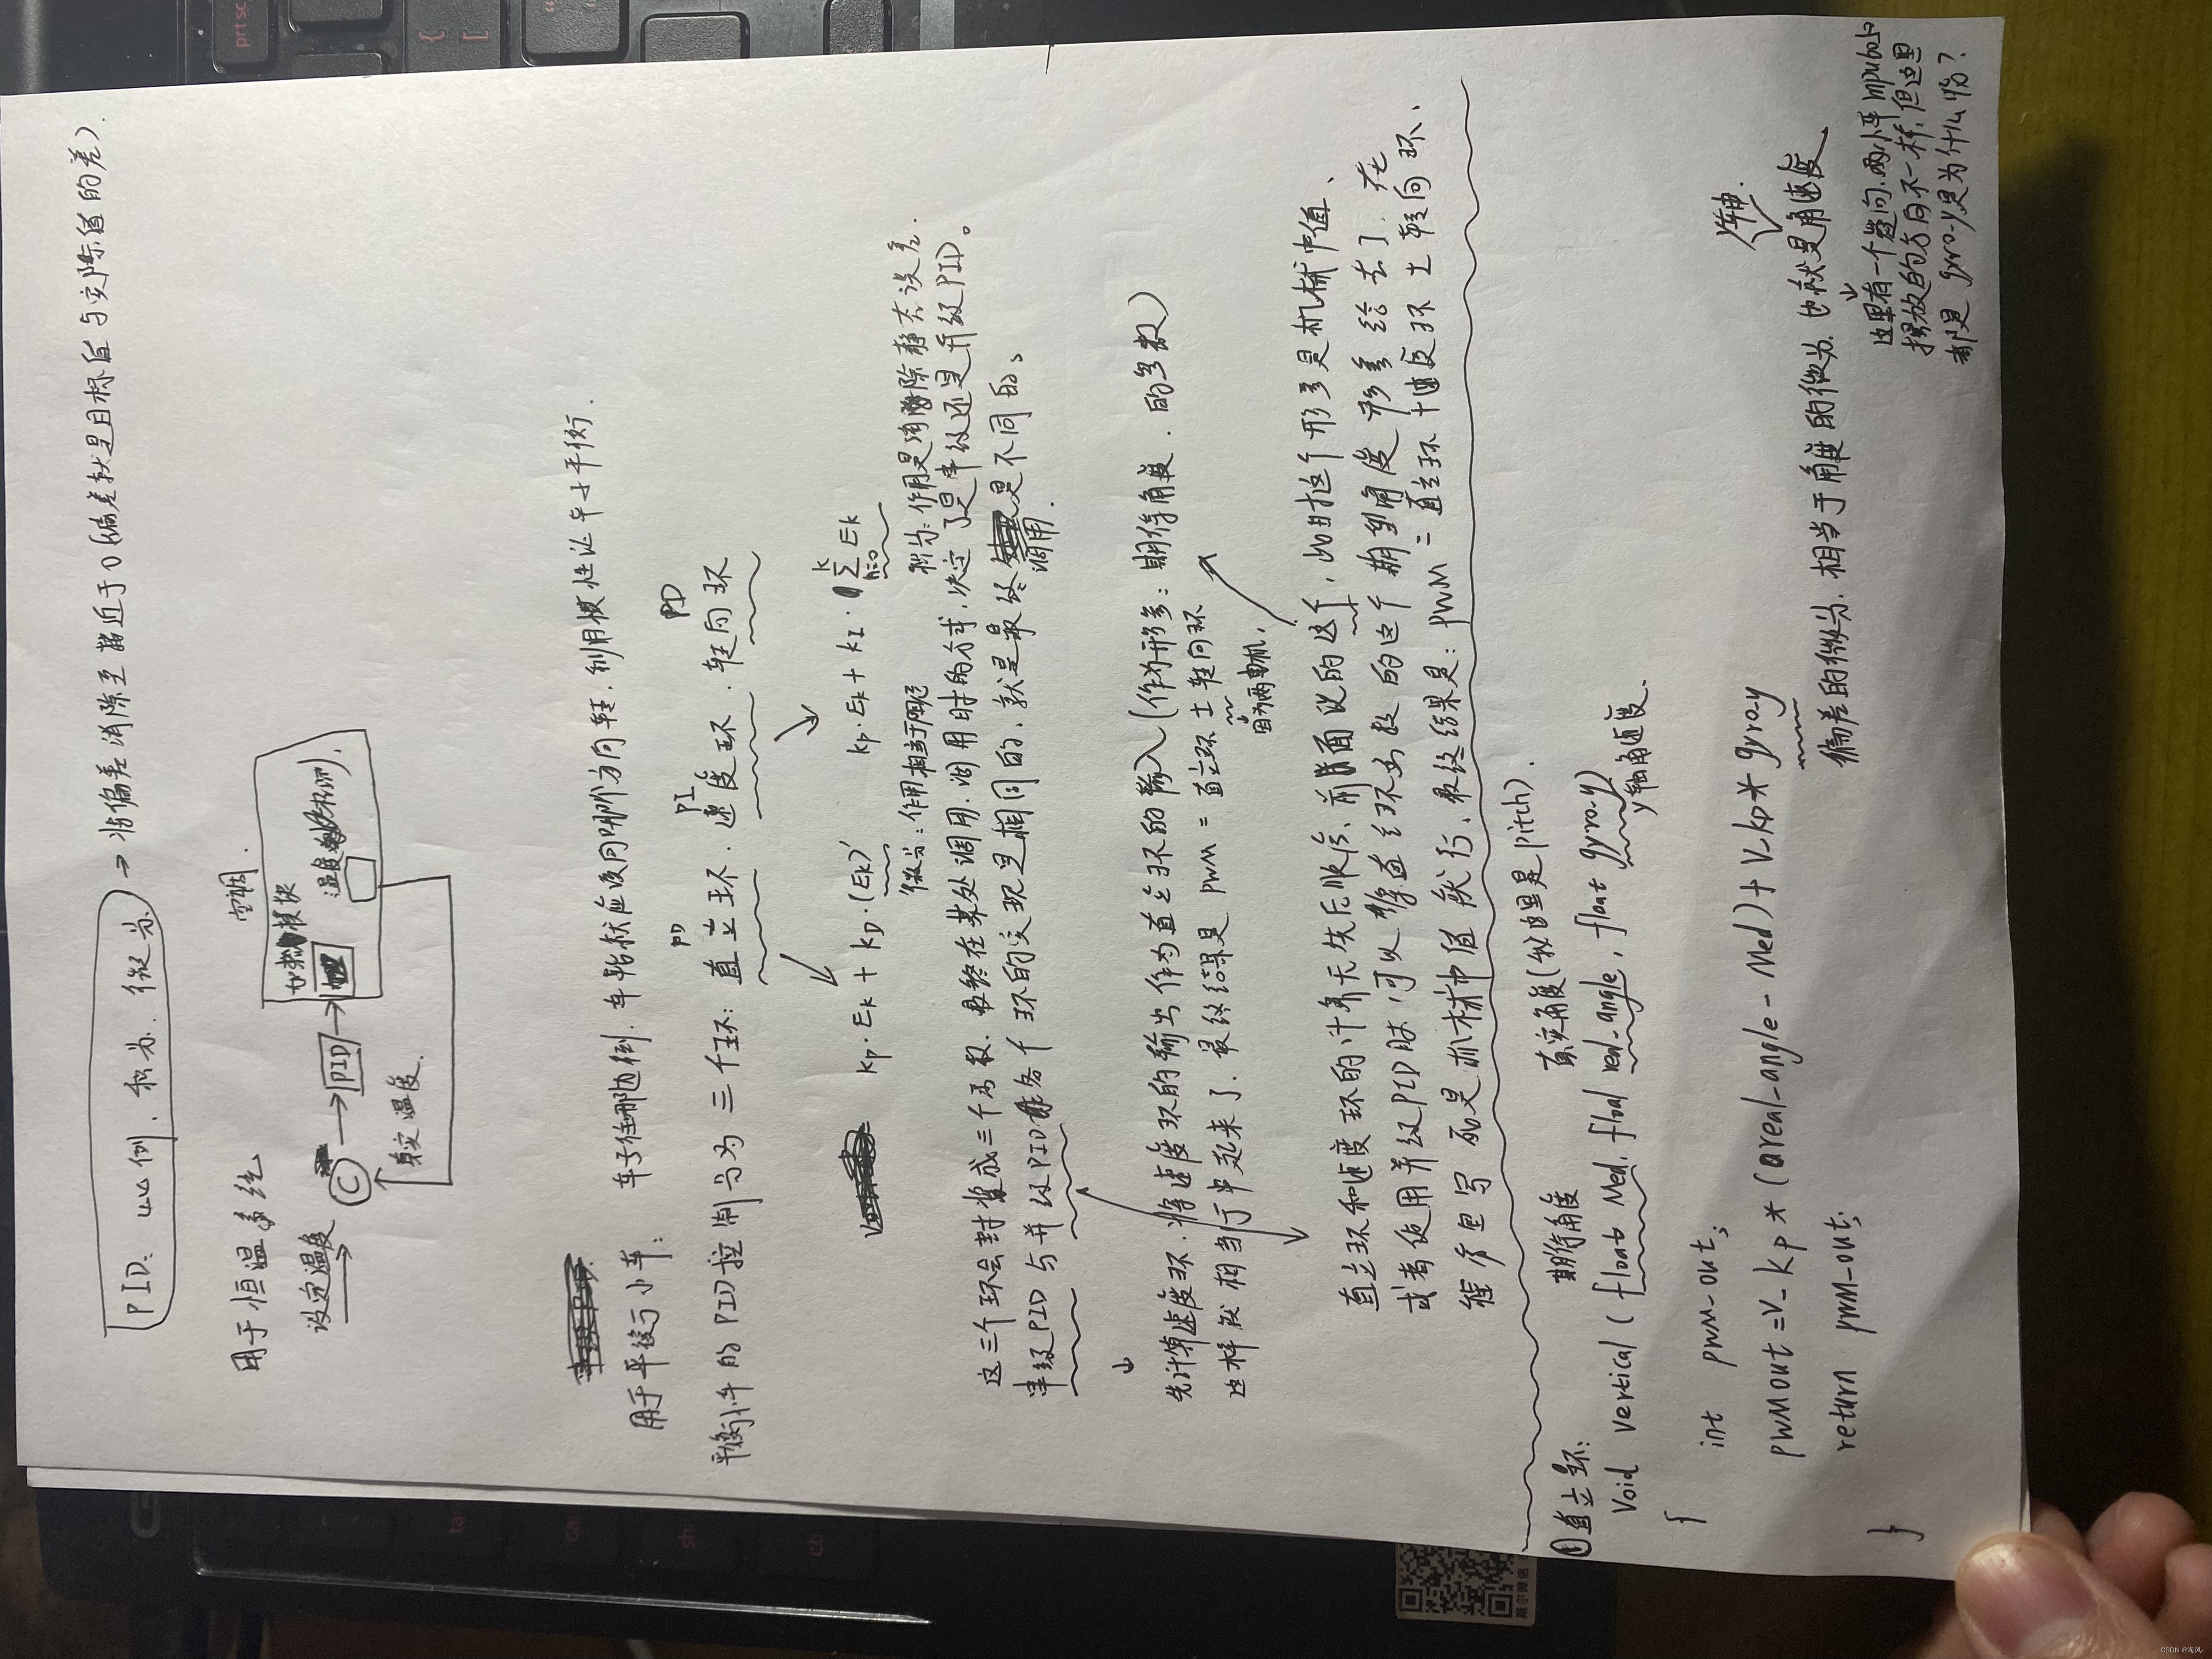 PID、比例、积分、微分 → 将偏差消除至趋近于0(偏差就是目标值与实际值的差).
用于恒温系统
空调
加热模块
温度
设定温度 → C → PID →
真实温度.
用于平衡小车: 车子往哪边倒, 车轮就应该向哪个方向转, 利用惯性让车子平衡.
平衡小车的PID控制分为三个环: 直立环、速度环、转向环
PD PI PD
kp·Ek + kD·(Ek)' kp·Ek + kI·∑Ek
k
n=0
微分:作用相当于阻尼 积分:作用是消除静态误差.
这三个环会封装成三个函数. 最终在某处调用. 调用时的方式, 决定了是串级还是并级PID。
串级PID与并级PID 各个环的实现是相同的, 就是最终调用是不同的、
先计算速度环. 将速度环的输出作为直立环的输入(作为形参: 期待角度. 的参数)
这样就相当于串起来了. 最终结果是 PWM = 直立环 ± 转向环
因为两电机,
直立环和速度环的计算无先后顺序, 前面说的这个, 此时把这个形参是机械中值、
或者使用并级PID时, 可以将直立环函数的这个期望角度形参给去了. 在
程序里写死是机械中值就行, 最终结果是: PWM = 直立环 + 速度环 ± 转向环、
①直立环: 期待角度 真实角度(我这里是pitch).
Void vertical ( float Med, float real-angle, float gyro-y)
y轴角速度.
{
int pwm-out;
pwmout = V_kp * (real-angle - Med) + V_kp * gyro-y
偏差的微分, 相当于角度的微分. 也就是角速度
y轴.
return pwm-out;
}
这里有一个疑问, 两个平衡mpu6050
摆放的方向不一样, 但这里
都是 gyro-y是为什么呢?
CSDN @海风